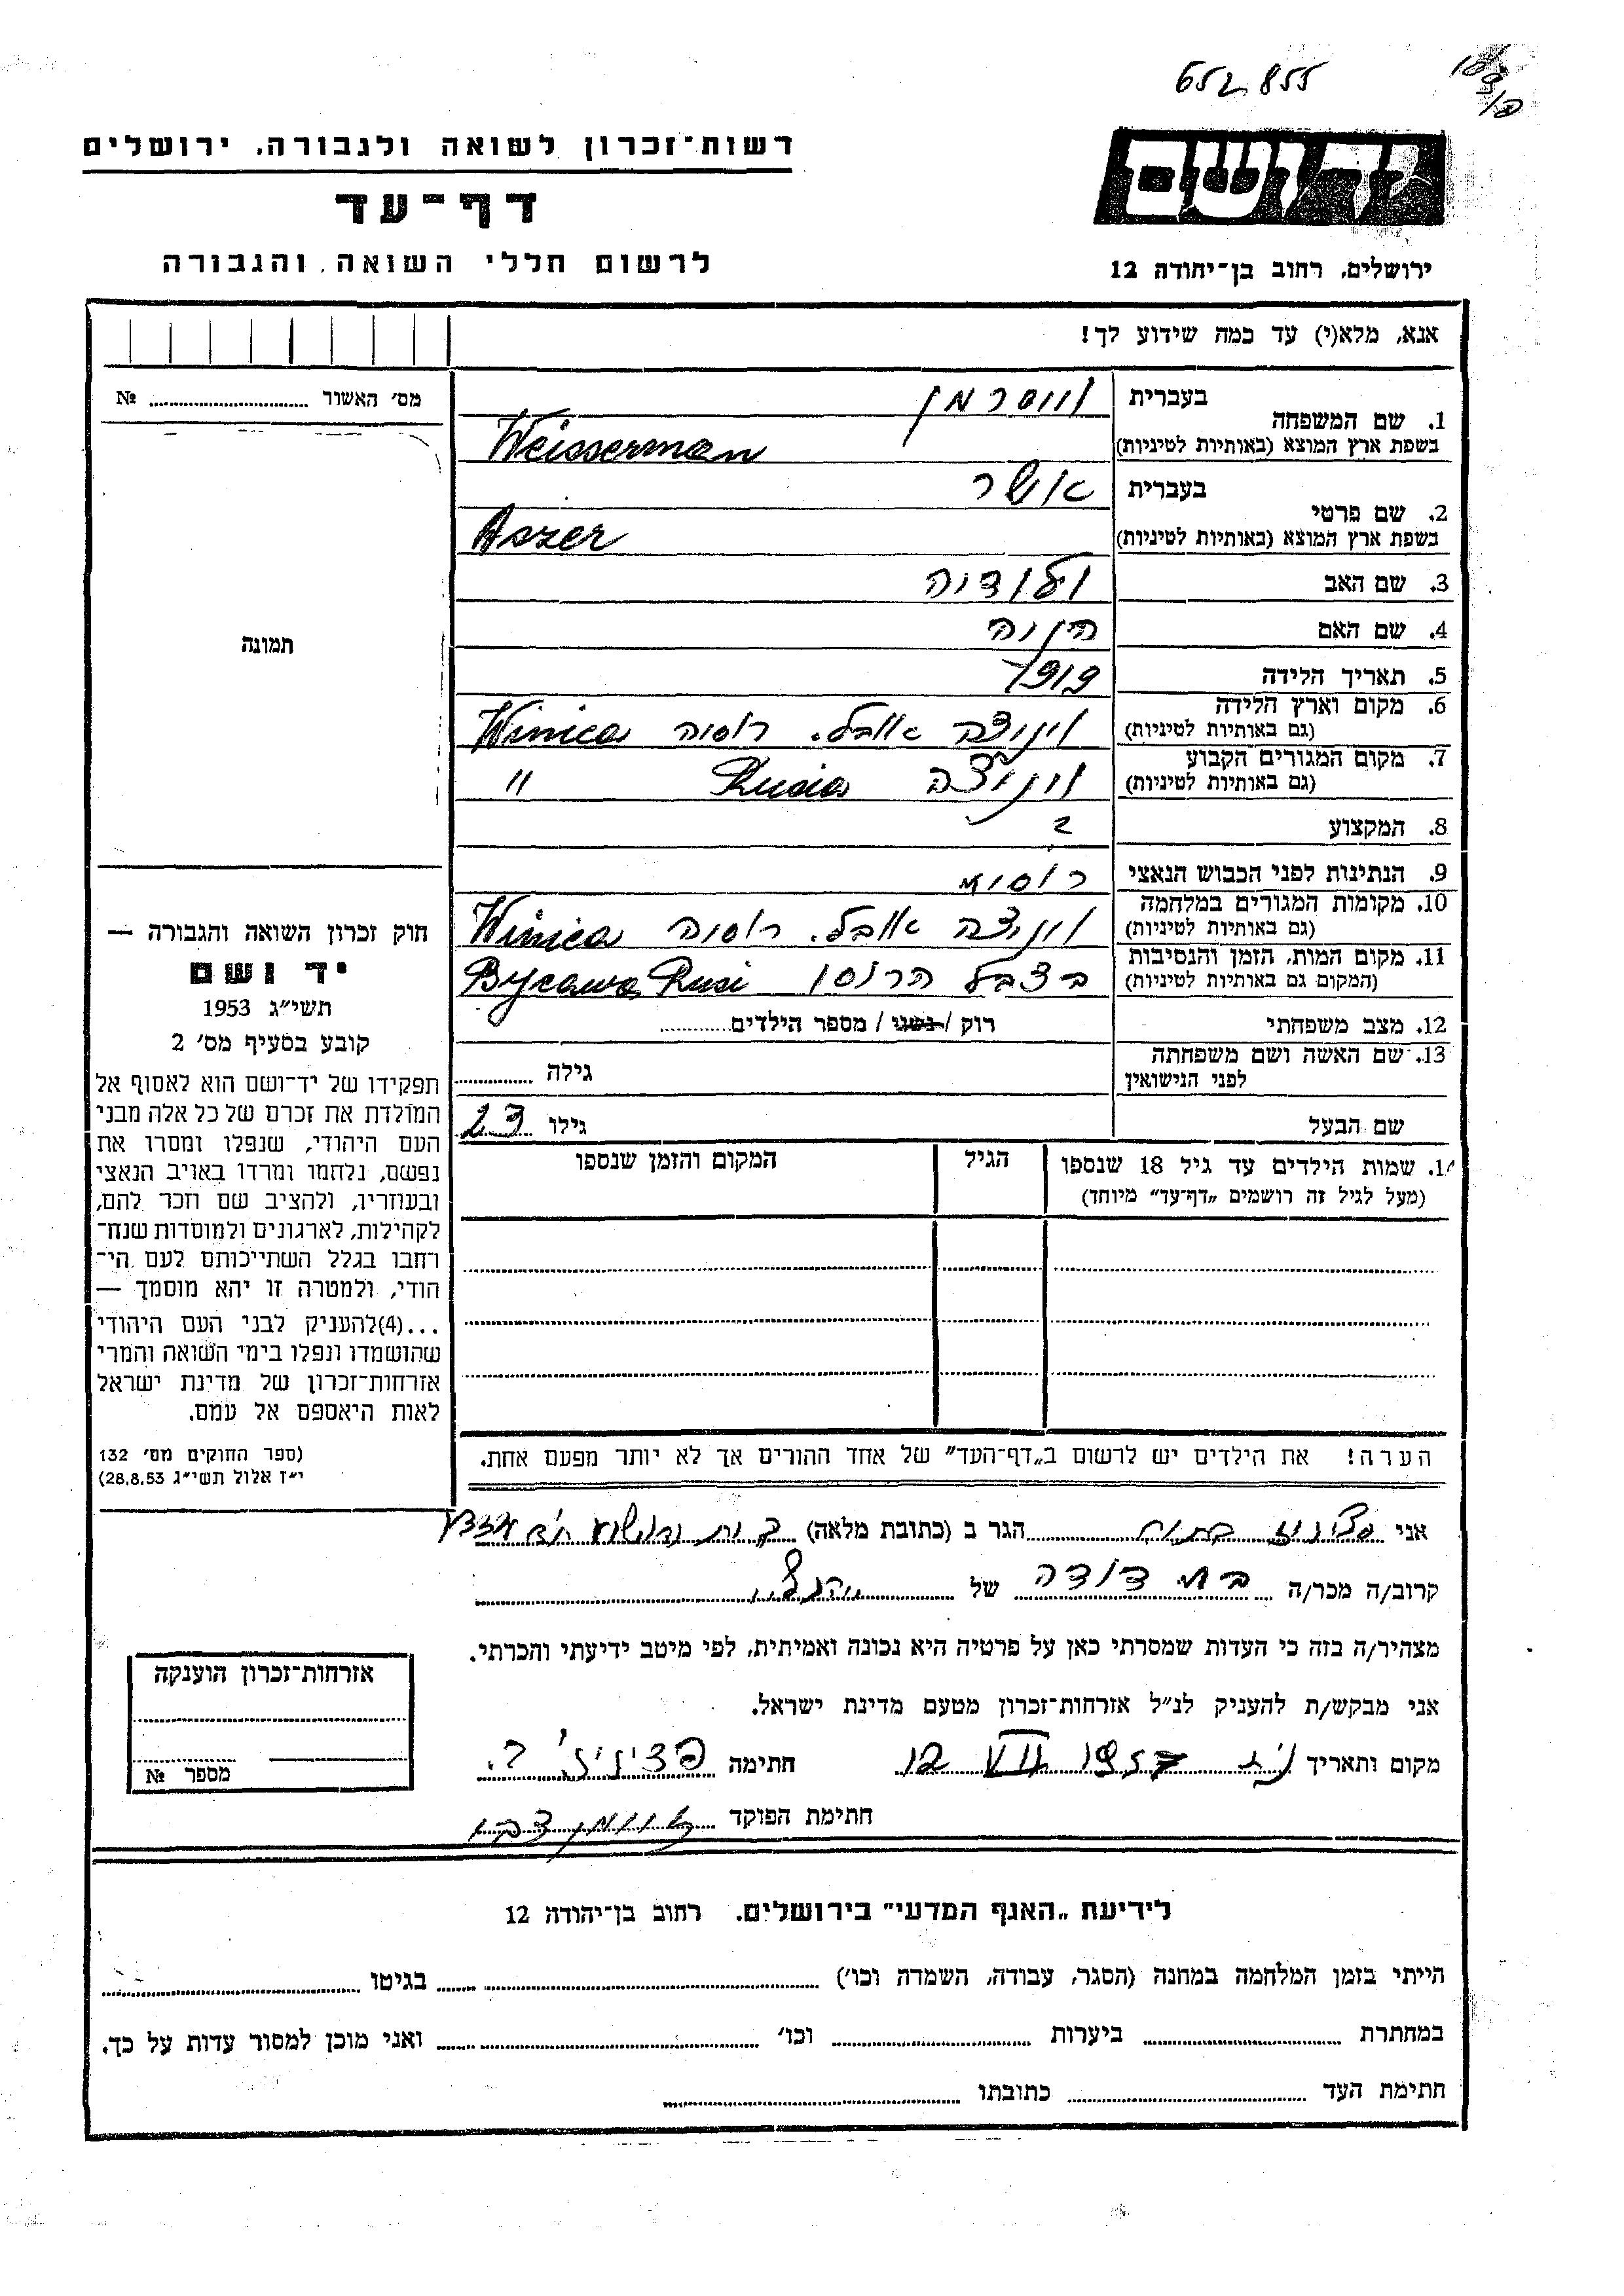 652855
רשות-זכרון לשואה ולגבורה, ירושלים
דף-עד
לרשום חללי השואה והגבורה
ידושם
ירושלים, רחוב בן-יהודה 12
אנא, מלא(י) עד כמה שידוע לך!
מס' האשור № 
1. שם המשפחה
בעברית וויסרמן
בשפת ארץ המוצא (באותיות לטיניות) Weisserman
2. שם פרטי
בעברית אשר
בשפת ארץ המוצא (באותיות לטיניות) Aszer
3. שם האב ולודיה
4. שם האם
5. תאריך הלידה 1919
6. מקום וארץ הלידה
(גם באותיות לטיניות) ויניצה אובל. רוסיה Winica
7. מקום המגורים הקבוע
(גם באותיות לטיניות) ויניצה Rusia "
8. המקצוע ?
9. הנתינות לפני הכבוש הנאצי רוסית
10. מקומות המגורים במלחמה
(גם באותיות לטיניות) ויניצה אובל. רוסיה Winica
11. מקום המות, הזמן והנסיבות
(המקום גם באותיות לטיניות) בצבא הרוסי Bycawa Rusi
12. מצב משפחתי רוק / נשוי / מספר הילדים
13. שם האשה ושם משפחתה
לפני הנישואין גילה
שם הבעל גילו 23
תמונה
חוק זכרון השואה והגבורה —
יד ושם
תשי"ג 1953
קובע בסעיף מס' 2
תפקידו של יד-ושם הוא לאסוף אל
המולדת את זכרם של כל אלה מבני
העם היהודי, שנפלו ומסרו את
נפשם, נלחמו ומרדו באויב הנאצי
ובעוזריו, ולהציב שם וזכר להם,
לקהילות, לארגונים ולמוסדות שנח-
רחבו בגלל השתייכותם לעם הי-
הודי, ולמטרה זו יהא מוסמך —
...(4)להעניק לבני העם היהודי
שהושמדו ונפלו בימי השואה והמרי
אזרחות-זכרון של מדינת ישראל
לאות היאספם אל עמם.
(ספר החוקים מס' 132
י"ז אלול תשי"ג 28.8.53)
14. שמות הילדים עד גיל 18 שנספו
(מעל לגיל זה רושמים „דף-עד" מיוחד)
הגיל
המקום והזמן שנספו
הערה! את הילדים יש לרשום ב„דף-העד" של אחד ההורים אך לא יותר מפעם אחת.
אני הגר ב (כתובת מלאה)
קרוב/ה מכר/ה בת דודה של
מצהיר/ה בזה כי העדות שמסרתי כאן על פרטיה היא נכונה ואמיתית, לפי מיטב ידיעתי והכרתי.
אני מבקש/ת להעניק לנ"ל אזרחות-זכרון מטעם מדינת ישראל.
מקום ותאריך 12 VII 1957 חתימה
חתימת הפוקד
אזרחות-זכרון הוענקה
מספר №
לידיעת „האגף המדעי" בירושלים. רחוב בן-יהודה 12
הייתי בזמן המלחמה במחנה (הסגר, עבודה, השמדה וכו') בגיטו
במחתרת ביערות וכו' ואני מוכן למסור עדות על כך.
חתימת העד כתובתו